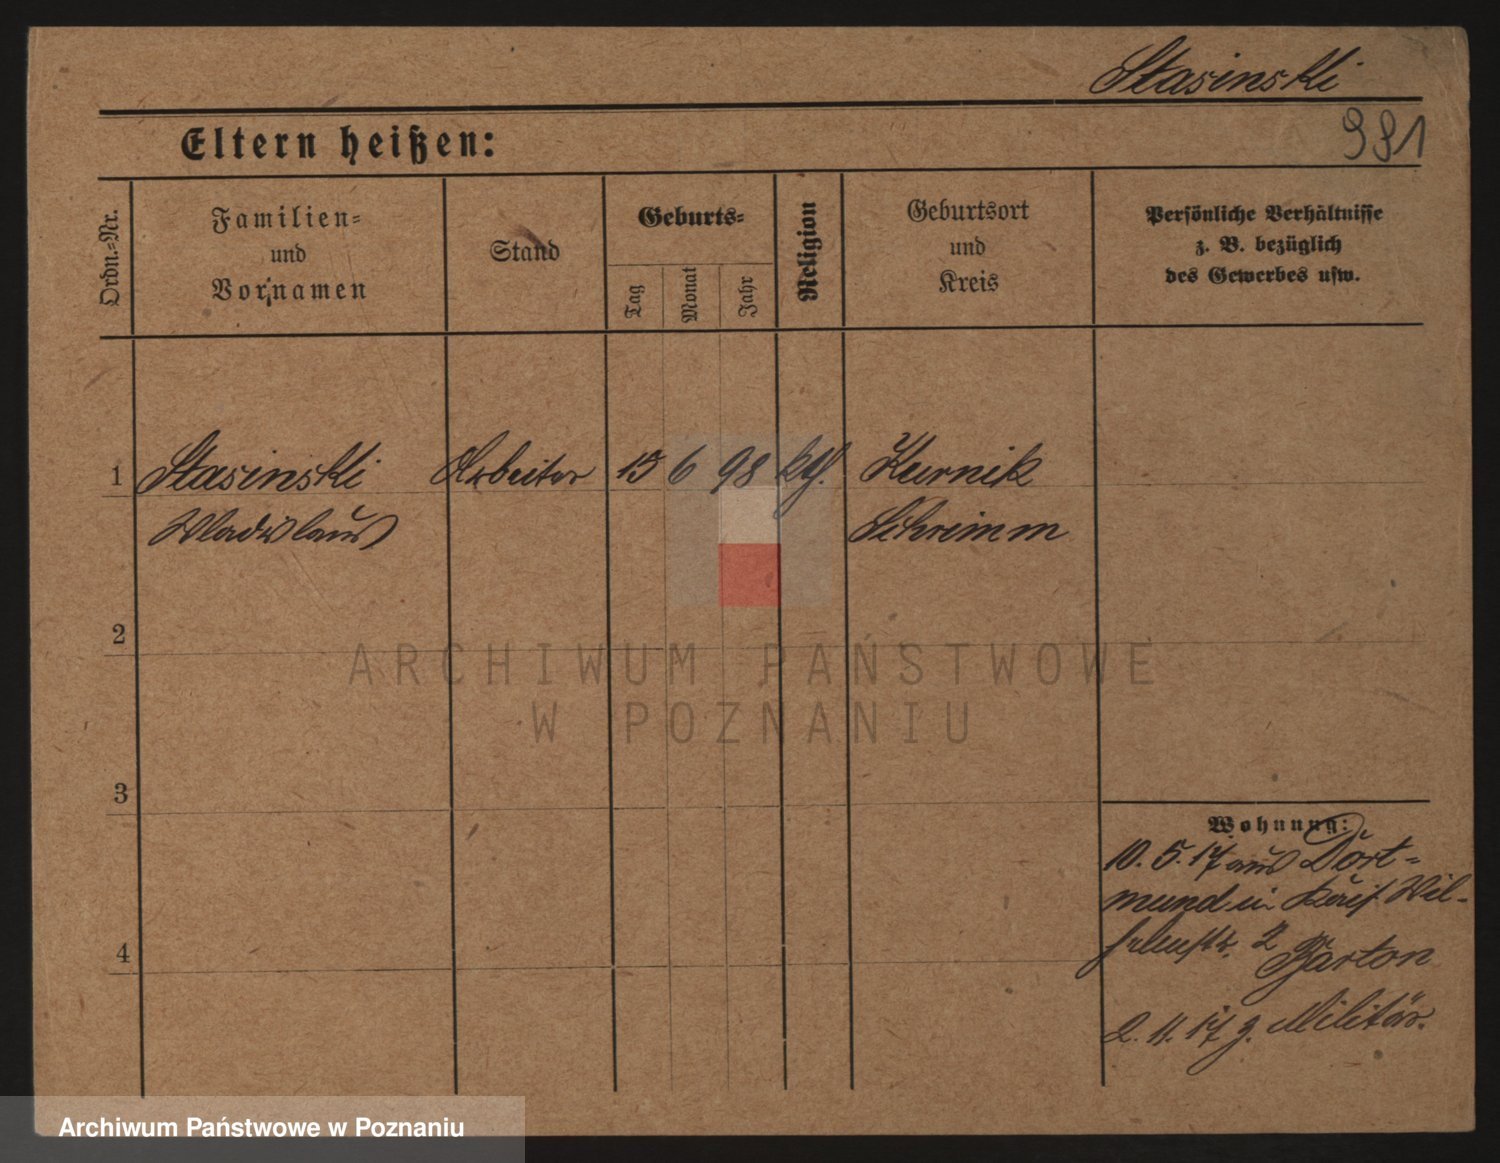 Stasinski
991
Eltern heißen:
Ordn.=Nr.
Familien=
und
Vornamen
Stand
Geburts=
Tag
Monat
Jahr
Religion
Geburtsort
und
Kreis
Persönliche Verhältnisse
z. B. bezüglich
des Gewerbes usw.
1 Stasinski Arbeiter 15 6 98 kath. Kurnik
Wladislaus Schrimm
ARCHIWUM PAŃSTWOWE
W POZNANIU
2
3
4
Wohnung:
10. 5. 17 aus Dort=
mund in Wil=
2
Barton
2. 11. 17 z. Militär.
Archiwum Państwowe w Poznaniu